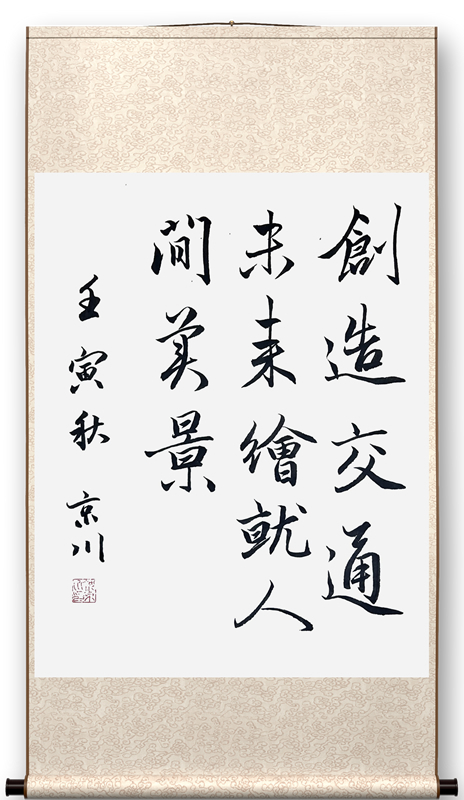 創造交通
未来繪就人
間美景
壬寅秋 京川